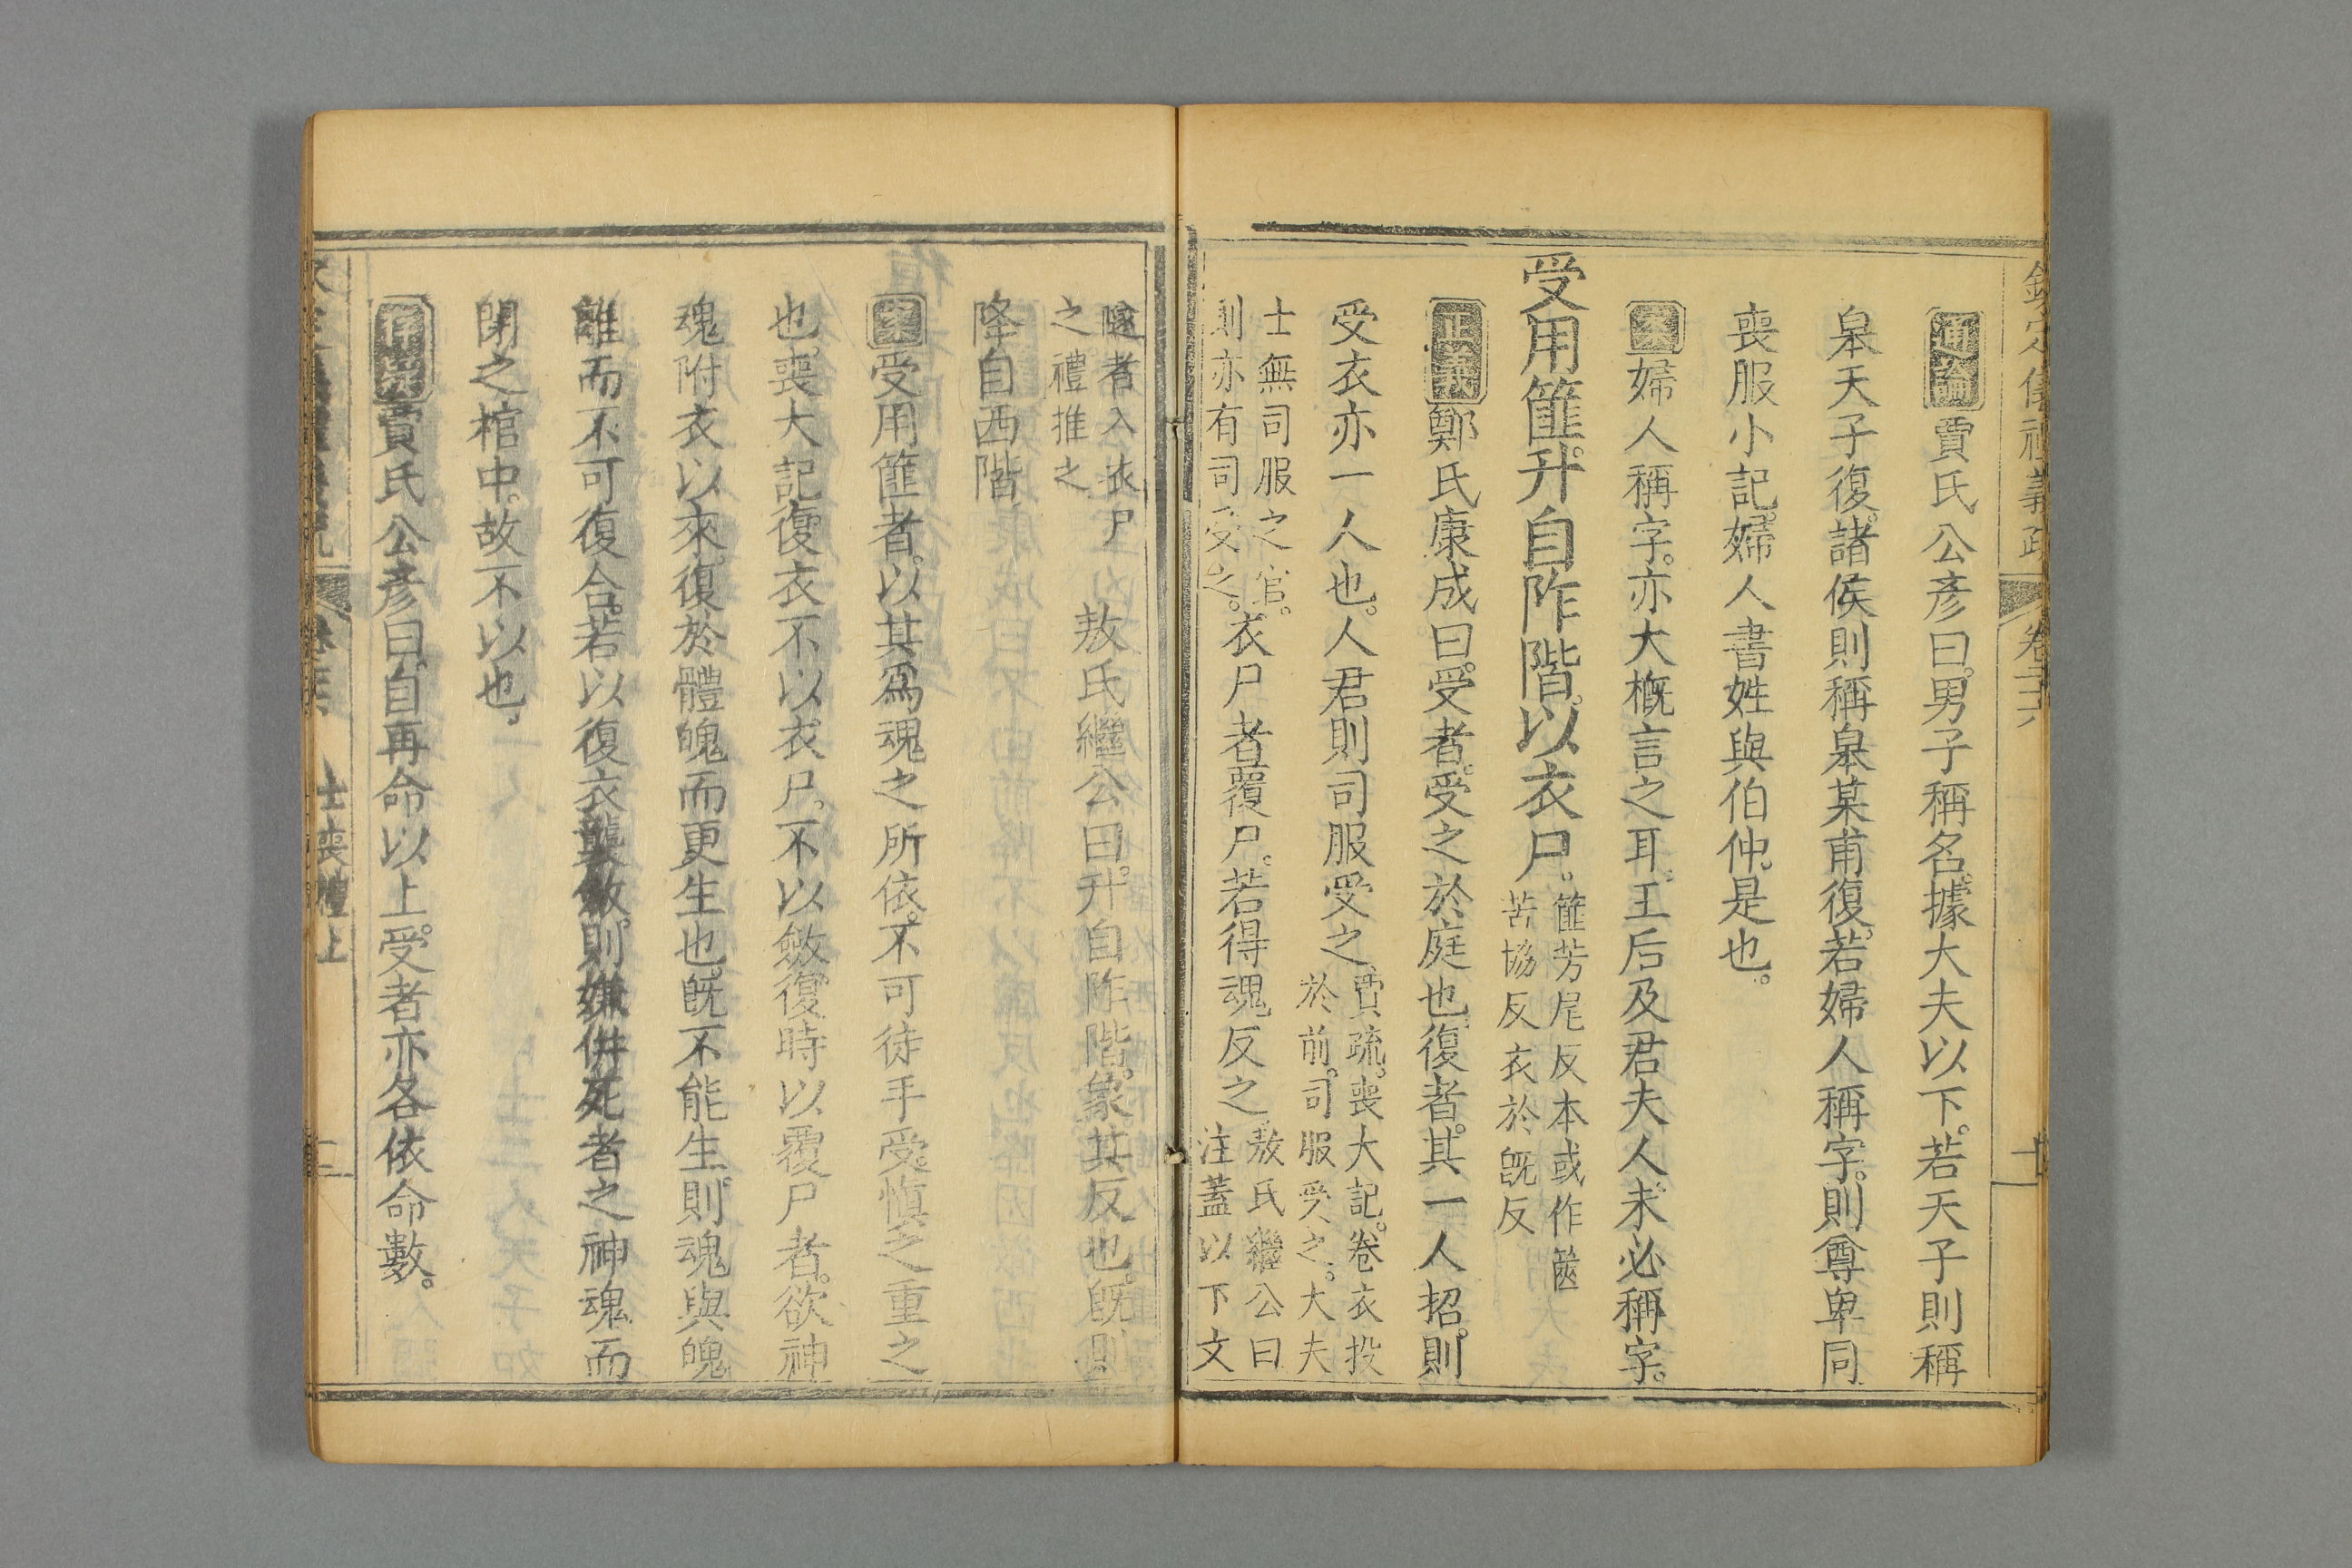 通論賈氏公彥曰。男子稱名。據大夫以下。若天子則稱
皋天子復。諸侯則稱皋某甫復。若婦人稱字。則尊卑同
喪服小記。婦人書姓與伯仲。是也。
案婦人稱字。亦大槪言之耳。王后及君夫人未必稱字。
受用篚。升自阼階。以衣尸。
篚芳尾反本或作
苦協反衣於旣反
正義鄭氏康成曰。受者。受之於庭也。復者。其一人招。則
受衣亦一人也。人君則司服受之。
賈疏。喪大記。卷衣投
於前。司服受之。大夫
士無司服之官。
則亦有司受之。
衣尸者覆尸。若得魂反之。
敖氏繼公曰
注蓋以下文
襚者入衣尸
之禮推之
敖氏繼公曰。升自阼階。象其反也。旣則
降自西階
案受用篚者。以其爲魂之所依。不可徒手受。愼之重之
也。喪大記。復衣不以衣尸。不以斂。復時以覆尸者。欲神
魂附衣以來。復於體魄而更生也。旣不能生。則魂與魄
離而不可復合。若以復衣襲斂。則嫌倂死者之神魂而
閉之棺中。故不以也。
通論賈氏公彥曰。自再命以上。受者亦各依命數。
士喪禮上